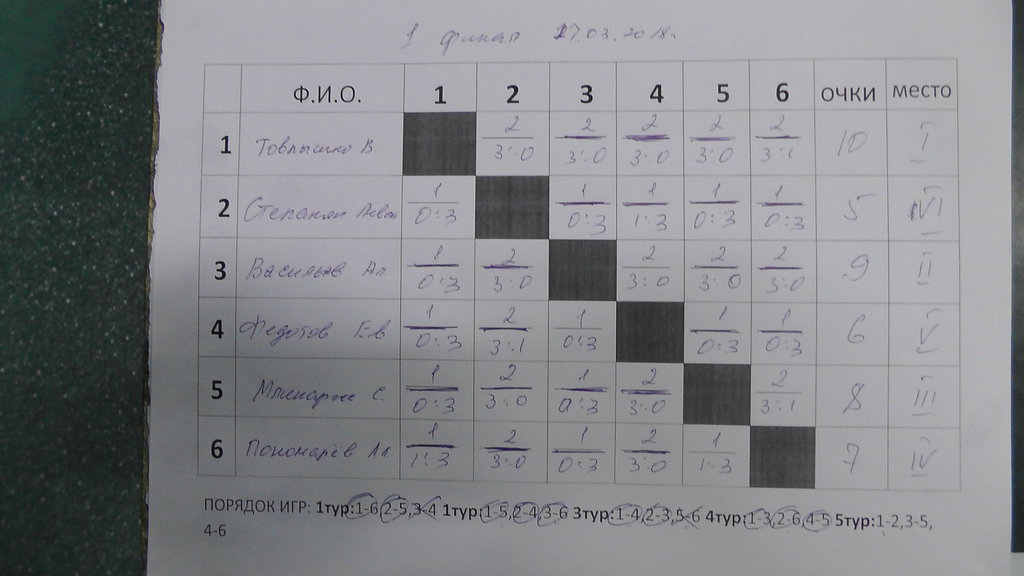 1 финал 17.03.2018г.
Ф.И.О. 1 2 3 4 5 6 очки место
1 Товпышко В. 2 2 2 2 2 10 I
3:0 3:0 3:0 3:0 3:1
2 Степанян 1 1 1 1 1 5 VI
0:3 0:3 1:3 0:3 0:3
3 Васильев Ал. 1 2 2 2 2 9 II
0:3 3:0 3:0 3:0 3:0
4 Федотов Е-в 1 2 1 1 1 6 V
0:3 3:1 0:3 0:3 0:3
5 С. 1 2 1 2 2 8 III
0:3 3:0 0:3 3:0 3:1
6 Пономарёв Ал. 1 2 1 2 1 7 IV
1:3 3:0 0:3 3:0 1:3
ПОРЯДОК ИГР: 1тур:1-6,2-5,3-4 1тур:1-5,2-4,3-6 3тур:1-4,2-3,5-6 4тур:1-3,2-6,4-5 5тур:1-2,3-5,
4-6